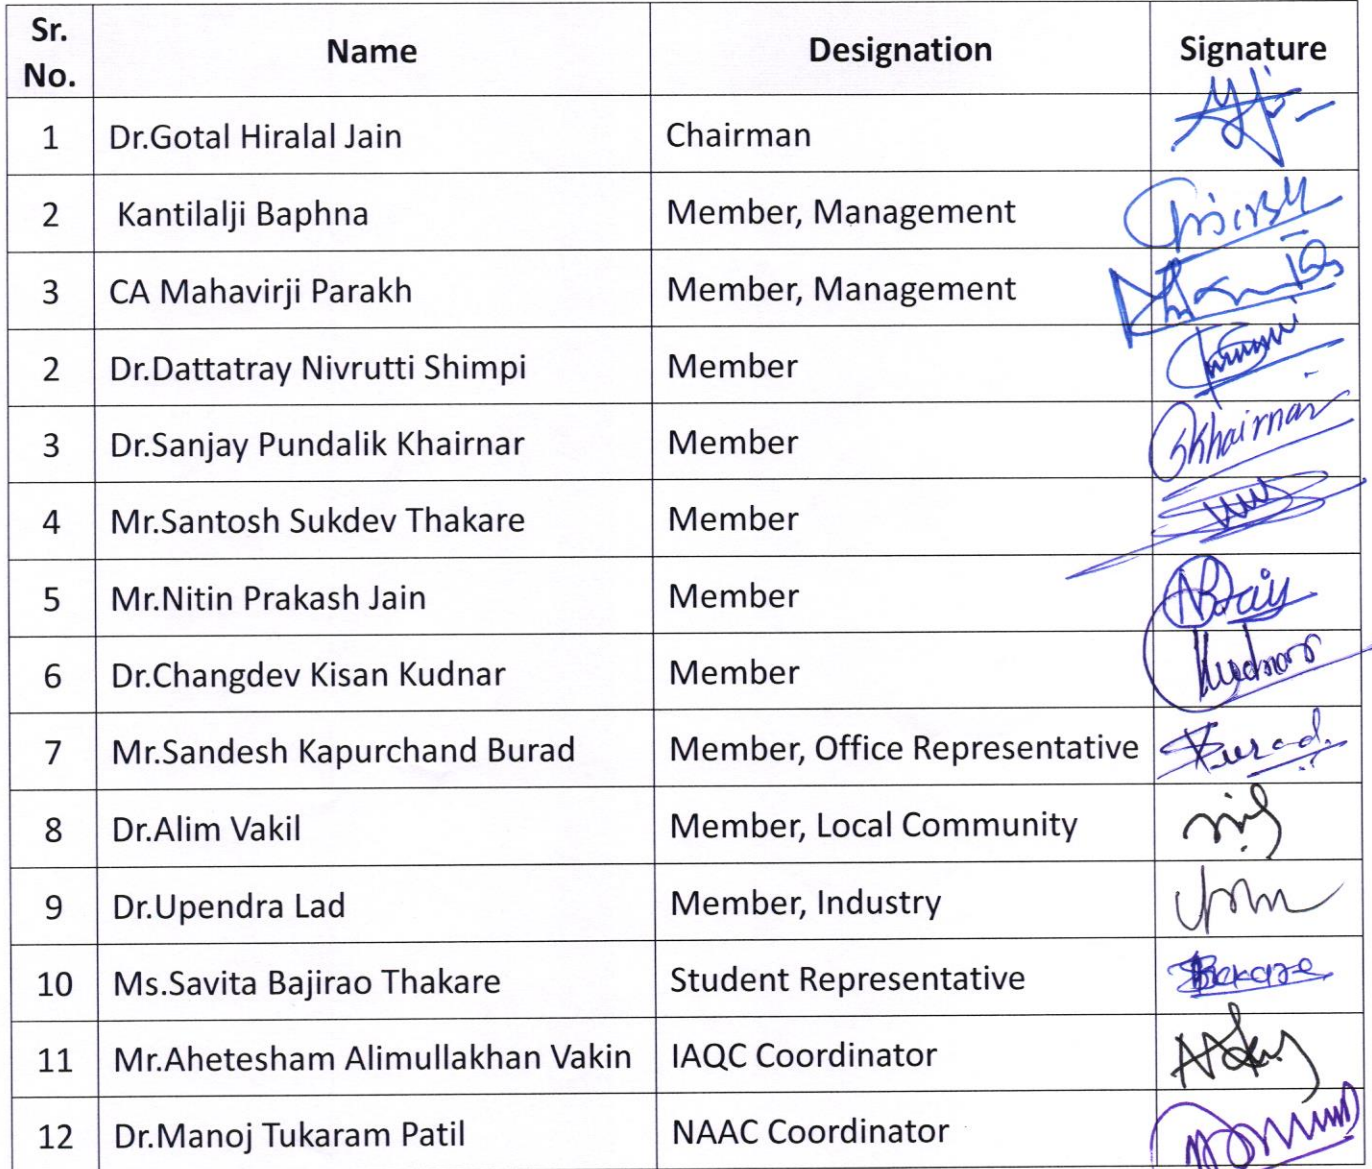 Sr. No. Name Designation Signature
1 Dr.Gotal Hiralal Jain Chairman
2 Kantilalji Baphna Member, Management
3 CA Mahavirji Parakh Member, Management
2 Dr.Dattatray Nivrutti Shimpi Member
3 Dr.Sanjay Pundalik Khairnar Member Skhairnar
4 Mr.Santosh Sukdev Thakare Member
5 Mr.Nitin Prakash Jain Member
6 Dr.Changdev Kisan Kudnar Member Kudnar
7 Mr.Sandesh Kapurchand Burad Member, Office Representative
8 Dr.Alim Vakil Member, Local Community
9 Dr.Upendra Lad Member, Industry
10 Ms.Savita Bajirao Thakare Student Representative
11 Mr.Ahetesham Alimullakhan Vakin IAQC Coordinator
12 Dr.Manoj Tukaram Patil NAAC Coordinator